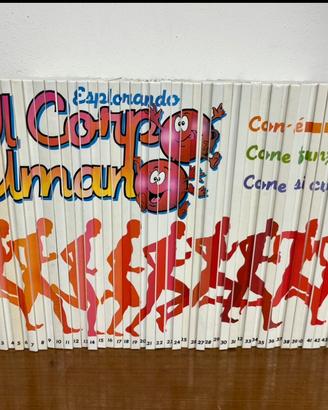 Esplorando
il Corpo
Umano
Com'è
Come funz
Come si cu
3 5 6 7 8 9 10 11 12 13 14 15 16 17 18 19 20 21 22 23 24 25 26 27 28 29 30 31 32 33 34 35 36 37 38 39 40 41 42